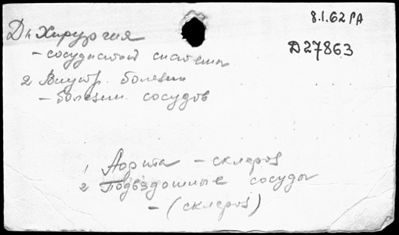 8.1.62 РА
D27863
D 1 Хирургия
- сосудистой системы
2 Внутр. болезни
- болезни сосудов
1 Аорта - склероз
2 Подвздошные сосуды
- (склероз)